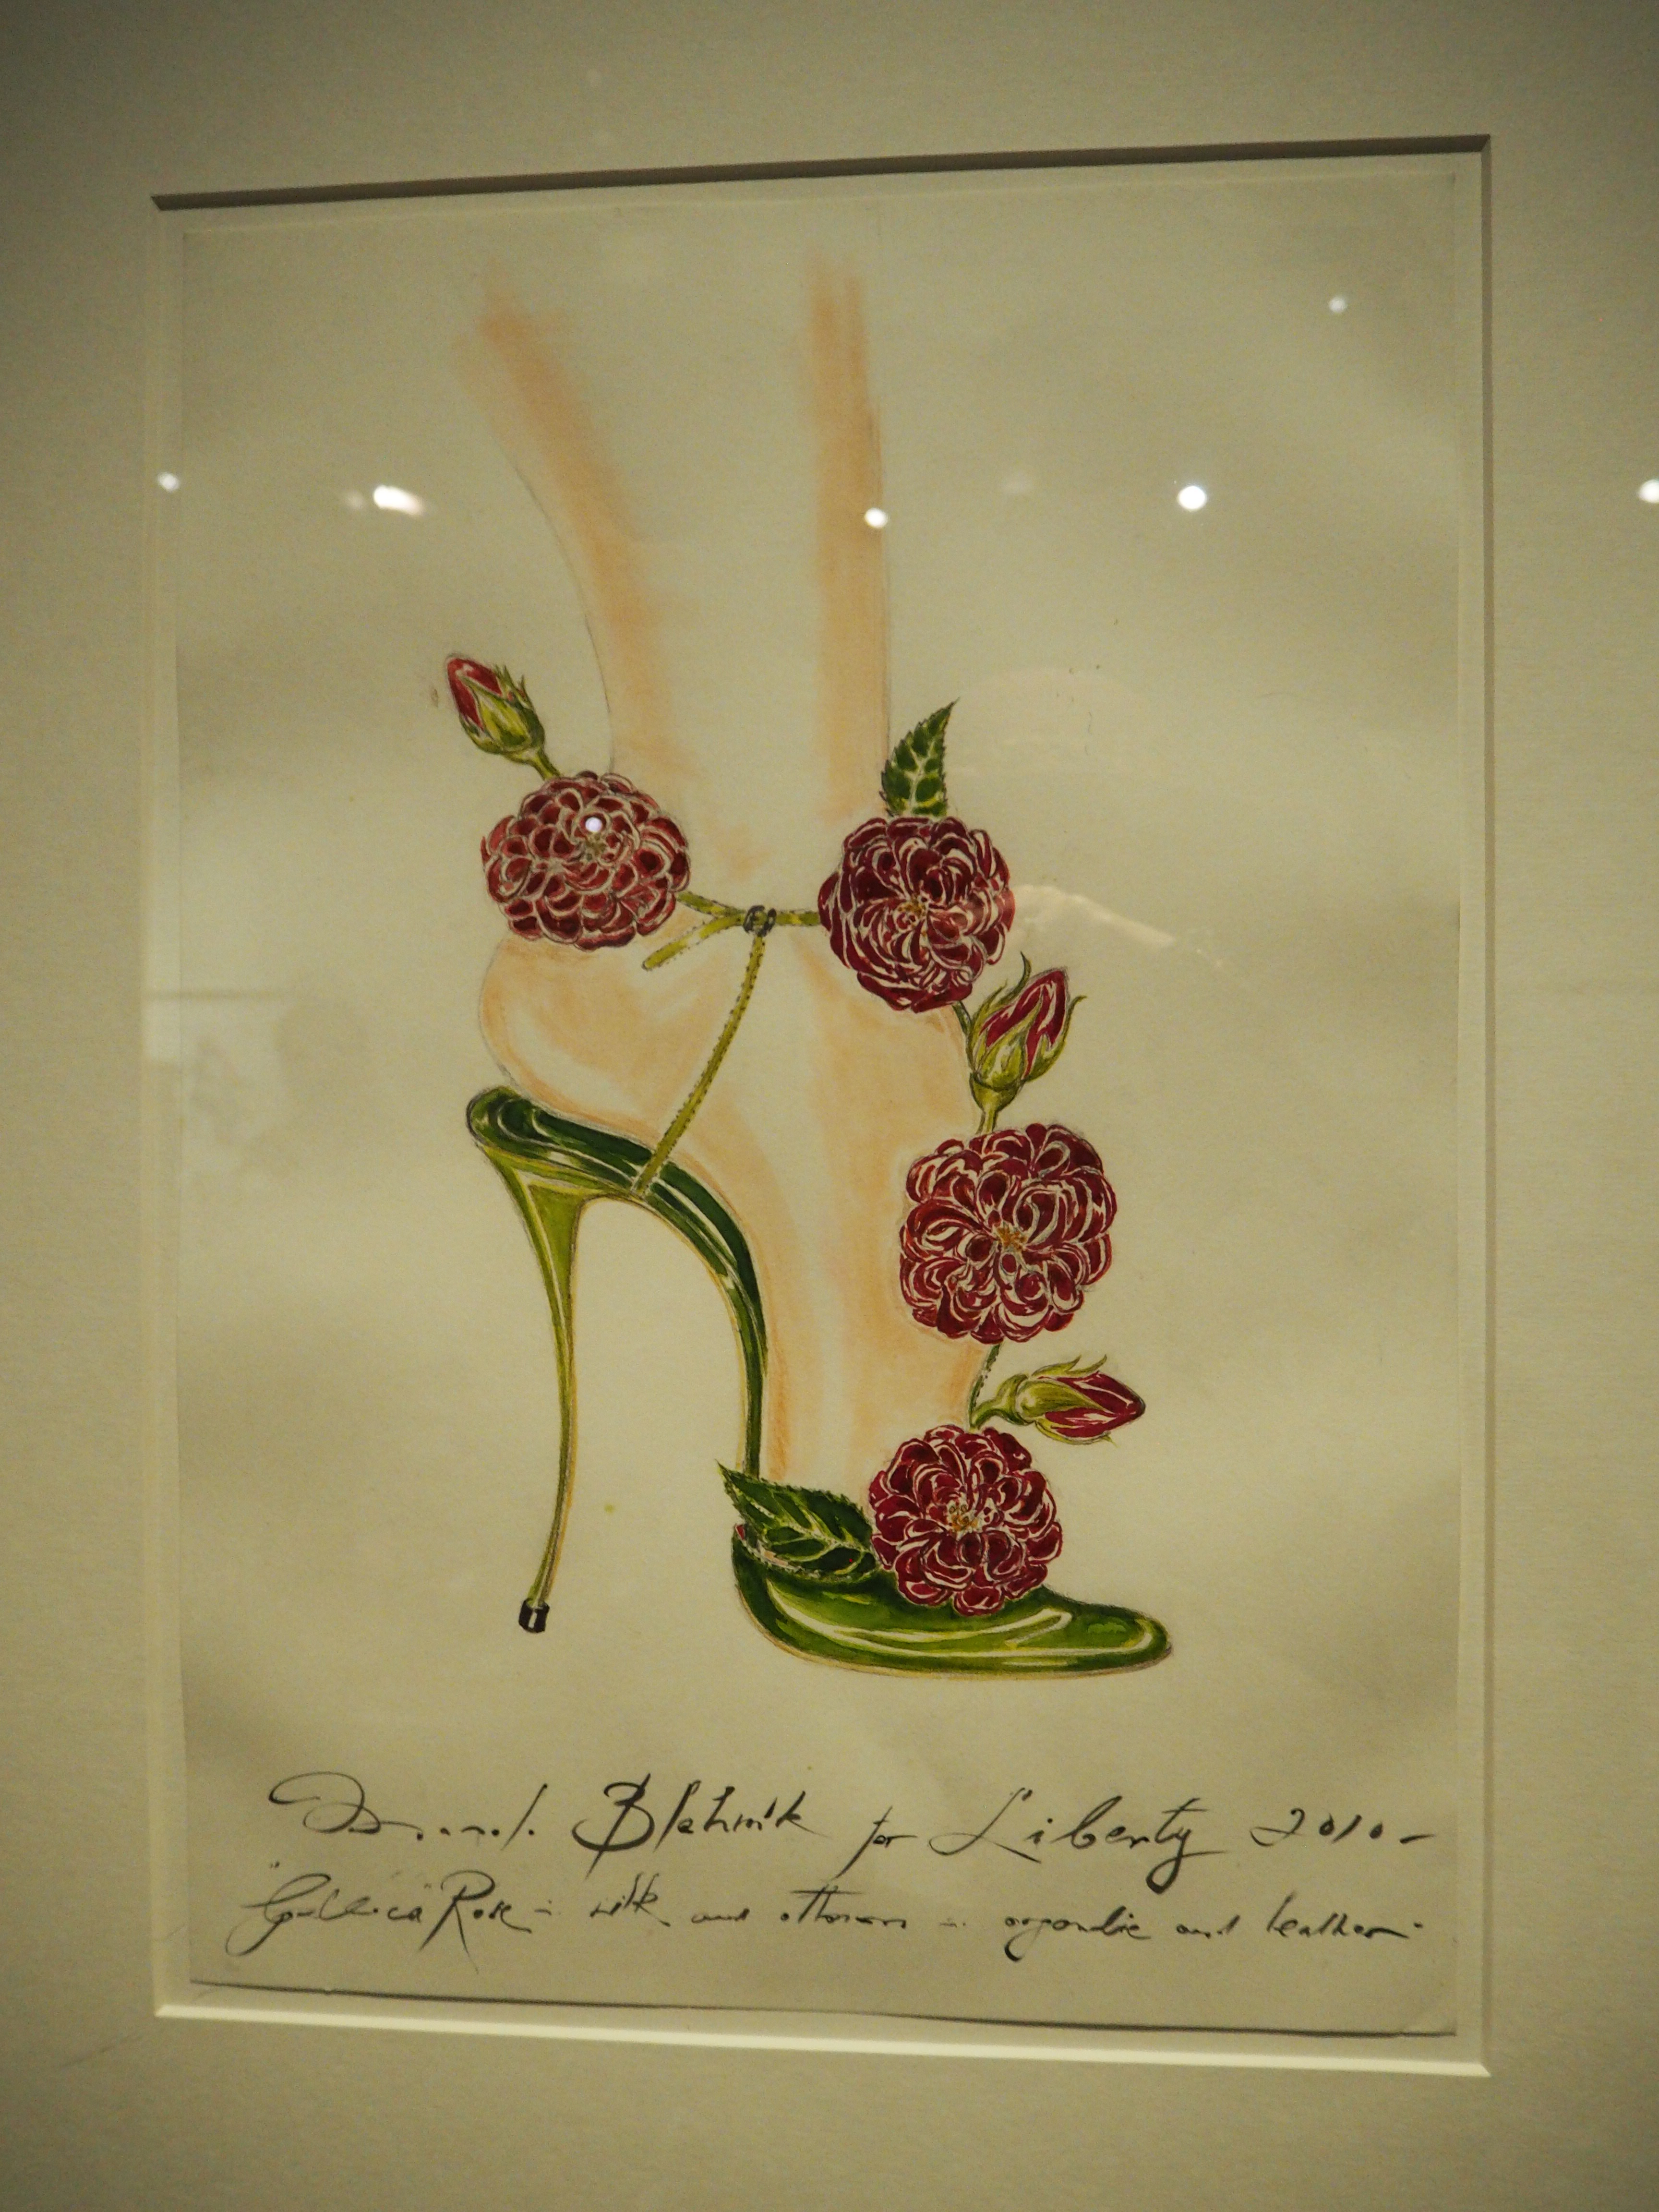 Manolo Blahnik for Liberty 2010 -
"Gallica" Rose - silk and ottoman - organdie and leather -